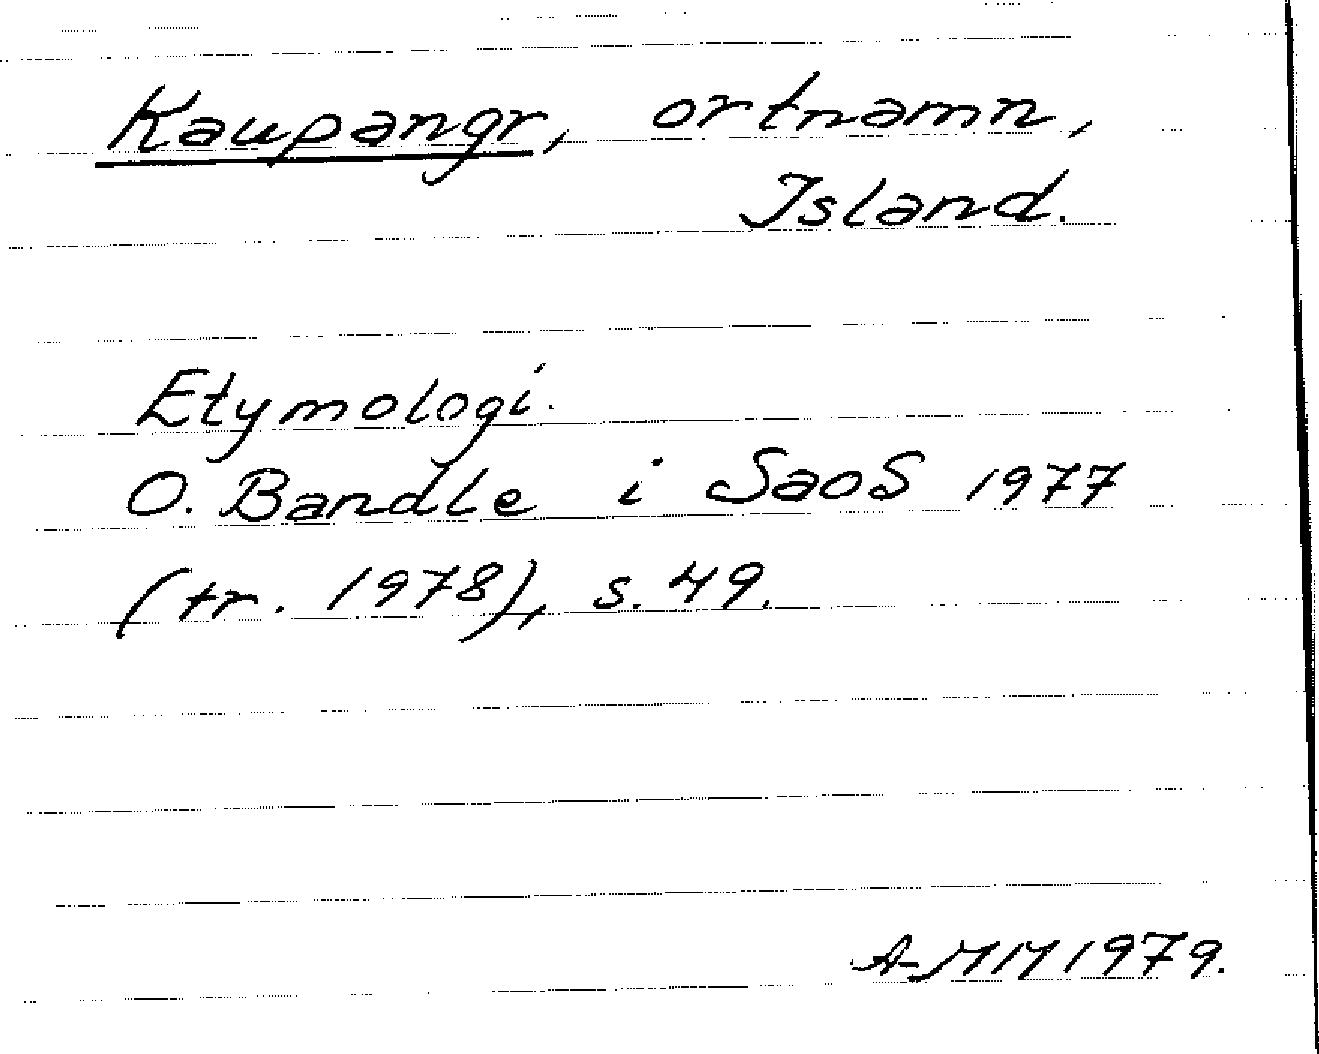 Kaupangr, ortnamn,
Island.
Etymologi.
O. Bandle i SaoS 1977
(tr. 1978), s. 49.
A-MM 1979.